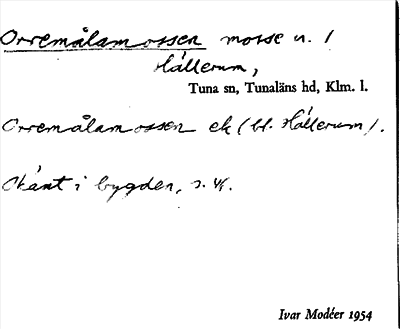 Orremålamossen mosse n. 1
Hällerum,
Tuna sn, Tunaläns hd, Klm. l.
Orremålamossen ek (bl. Hällerum).
Okänt i bygden,
Ivar Modéer 1954